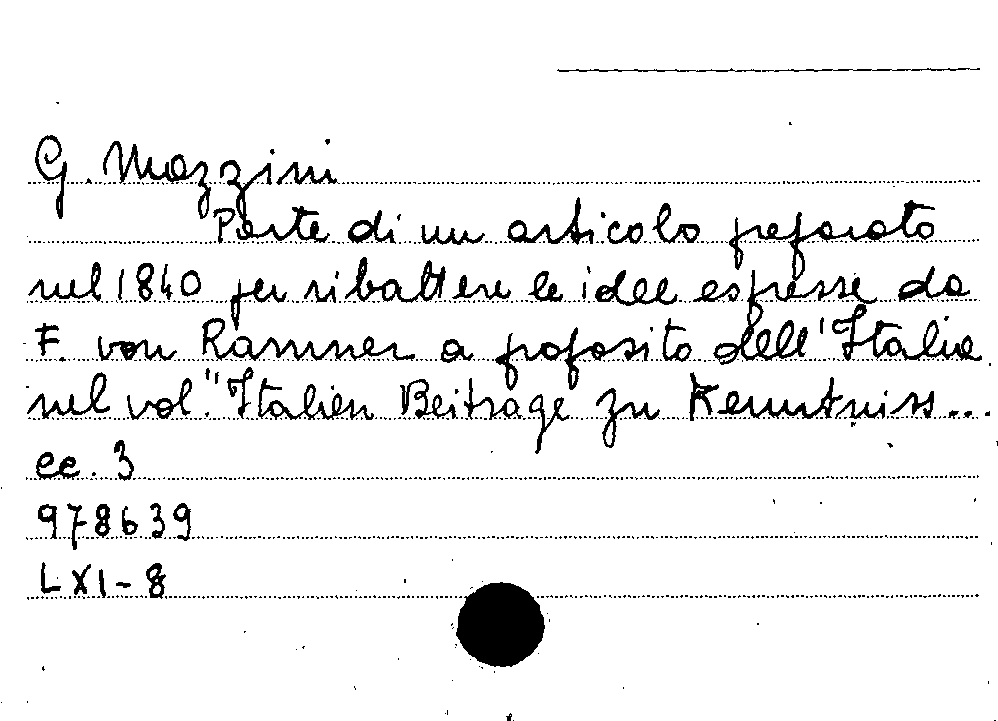 G. Mazzini
Parte di un articolo preparato
nel 1840 per ribattere le idee espresse da
F. von Raumer a proposito dell'Italia
nel vol. "Italien Beitrage zu Kenntniss...
cc. 3
978639
LXI-8